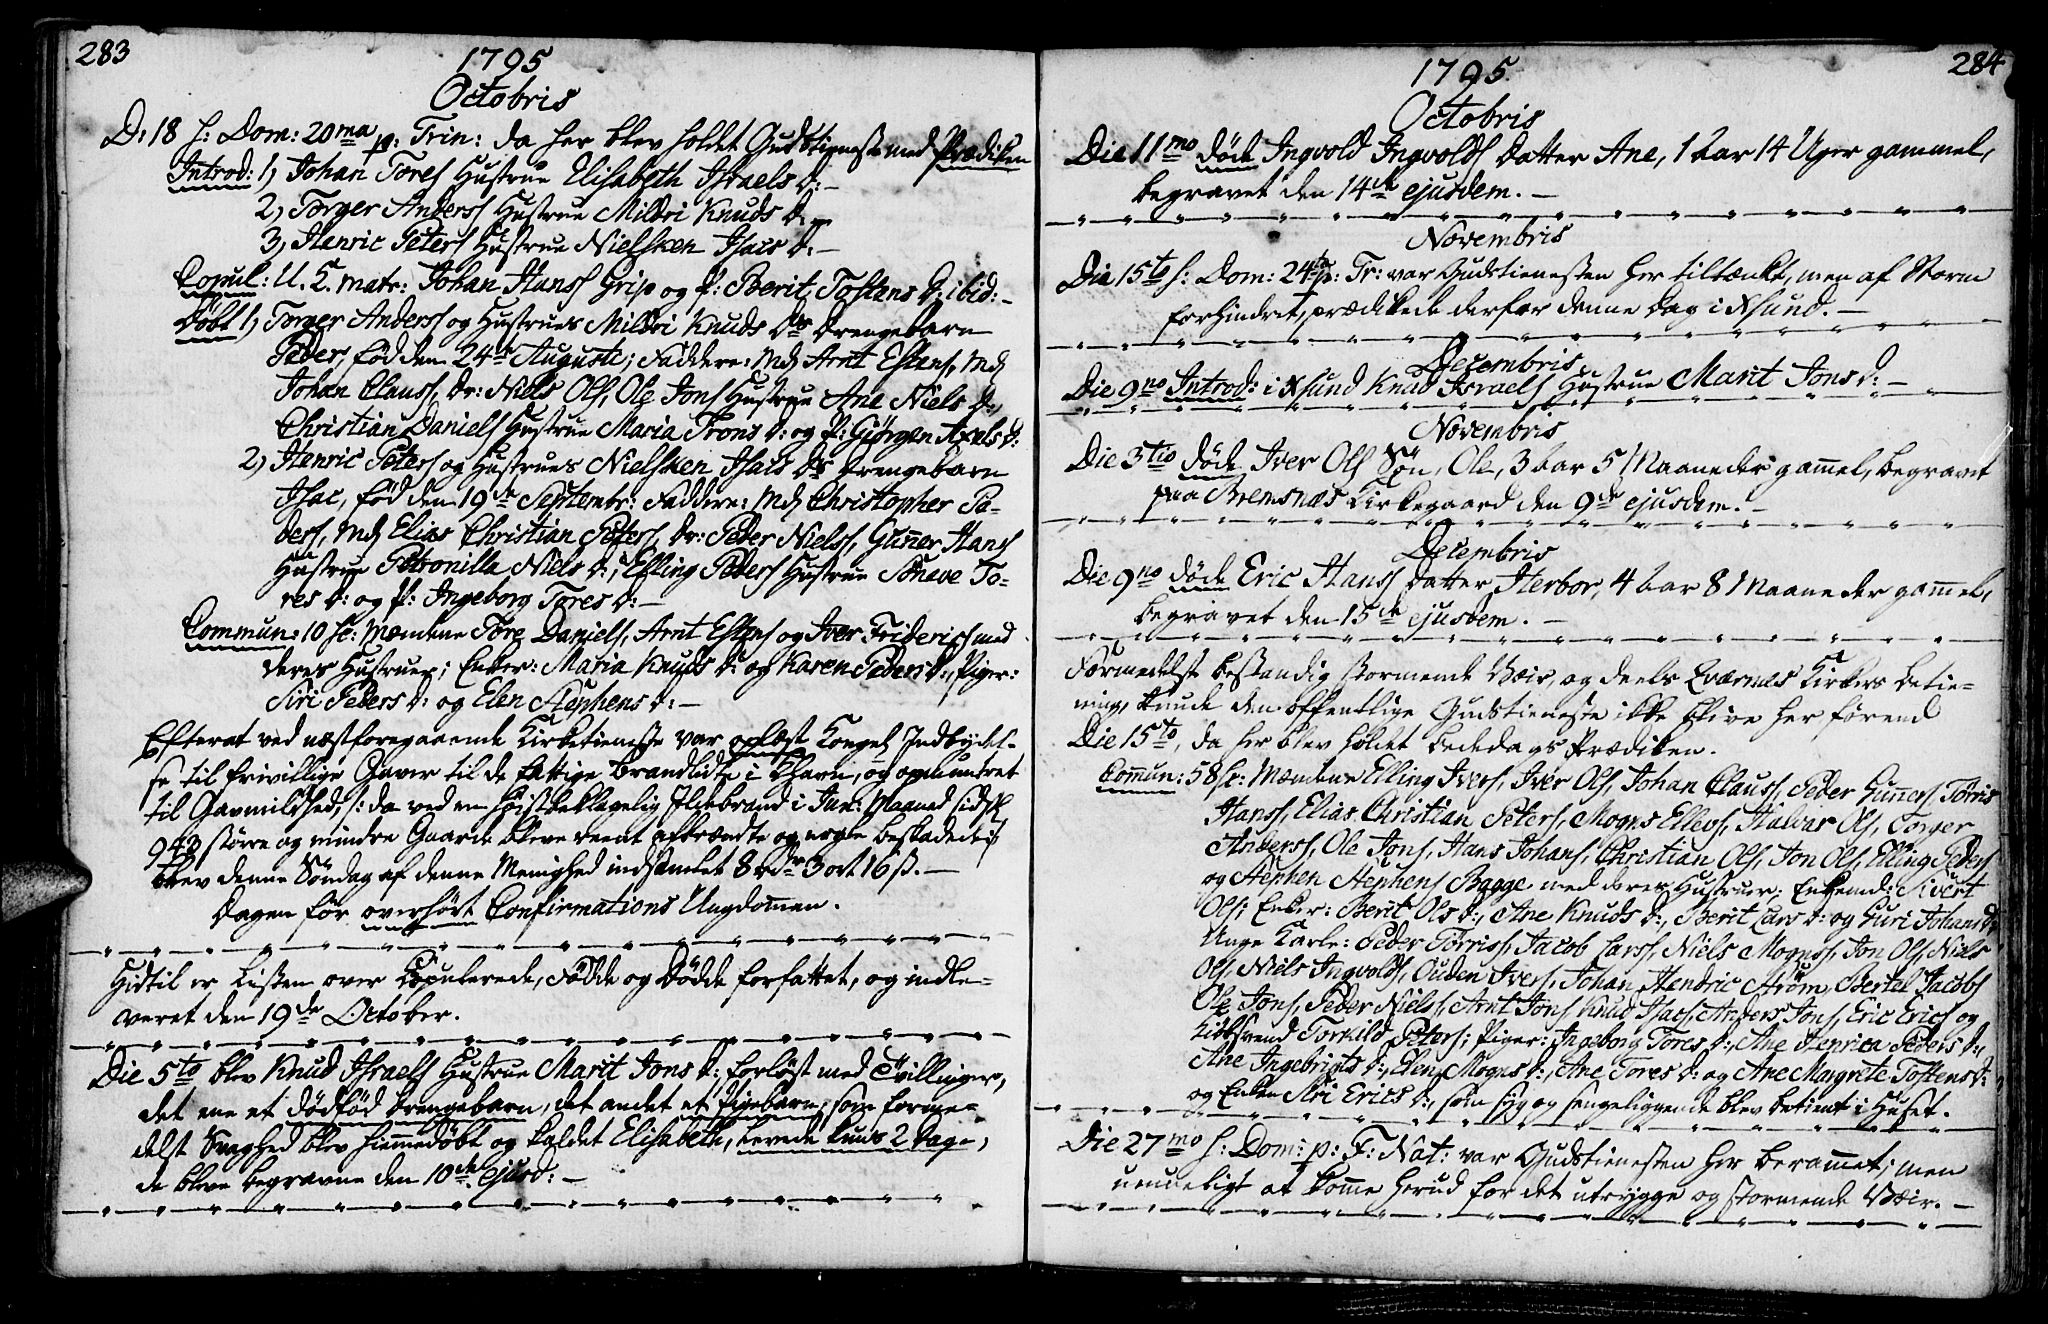 283
1795
Octobris
D: 18 h: Dom: 20ma p: Trin: da her blev holdet Gudstieneste med Prædiken
Introd: 1, Johan Tores Hustrue Elisabeth Israels D: —
2, Torger Anders Hustrue Mildri Knuds D: —
3, Henric Peters Hustrue Nielsken Isacs D: —
Copul: U. K. matr: Johan Hans Grip og P: Berit Tostens D. ibid: —
Døbt 1, Torger Anders og Hustrues Mildri Knuds Ds Drengebarn
Peder, fød den 24de Augusti; Faddere: Md Arnt Estens, Md
Johan Claus, Dr: Niels Ols, Ole Jons Hustrue Ane Niels D:,
Christian Daniels Hustrue Maria Trons D: og P: Giørgen Axels D:
2, Henric Peters og Hustrues Nielsken Isacs Ds Drengebarn
Isac, fød den 19de Septembr: Faddere: Md Christopher Pe-
ders, Md Elias Christian Peters, Dr: Peder Niels, Gunner Hans
Hustrue Petronilla Niels D:, Elling Peders Hustrue Synneve To-
res D: og P: Ingeborg Tores D: —
Commun: 10 se: Mændene Tore Daniels, Arnt Estens og Iver Friderics med
deres Hustruer; Enker: Maria Knuds D: og Karen Peders D:, Piger:
Siri Peders D: og Elen Stephens D: —
Efterat ved næstforegaaende Kirketieneste var oplæst Kongel Indbydel-
se til frivillige Gaver til de fattige brandlidte i Khavn, og opmuntret
til Gavmildhed, /: da ved en høistbeklagelig Ildebrand i Jun: Maaned sidstl
943 større og mindre Gaarde bleve reent afbrændte og nogle beskadede :/
blev denne Søndag af denne Menighed indsamlet 8 rdr 3 ort 16 ß. —
Dagen før overhørt Confirmations Ungdommen.
Hidtil er Listen over Copulerede, Fødde og Dødde forfattet, og indle-
veret den 19de October.
Die 5to blev Knud Israels Hustrue Marit Jons D: forløst med Tvillinger,
det ene et dødfød Drengebarn, det andet et Pigebarn, som forme-
delst Svaghed blev hiemmedøbt og kaldet Elisabeth, levede kuns 2 Dage,
de bleve begravne den 10de ejusd: —
284
1795
Octobris
Die 11mo døde Ingvold Ingvolds Datter Ane, 1 Aar 14 Uger gammel,
begravet den 14de ejusdem. —
Novembris
Die 15to h: Dom: 24ta p: Tr: var Gudstienesten her tiltænkt, men af Storm
forhindret, prædikede derfor denne Dag i Xsund. —
Decembris
Die 9no Introd: i Xsund Knud Israels Hustrue Marit Jons D: —
Novembris
Die 3tio døde Iver Ols Søn, Ole, 3 Aar 5 Maaneder gammel, begravet
paa Bremsnæs Kirkegaard den 9de ejusdem. —
Decembris
Die 9no døde Eric Hans Datter, Herbor, 4 Aar 8 Maaneder gammel,
begravet den 15de ejusdem. —
Formedelst bestandig stormende Veir, og deels Qværnes Kirkes Betie-
ning, kunde den offentlige Gudstieneste ikke blive her førend
Die 15to, da her blev holdet Bededags Prædiken.
Commun: 58 se: Mændene Elling Ivers, Iver Ols, Johan Claus, Peder Gunners, Tørris
Hans, Elias Christian Peters, Mogns Ellevs, Halvar Ols, Torger
Anders, Ole Jons, Hans Johans, Christian Ols, Jon Ols, Elling Peders
og Stephen Stephens Bagge med deres Hustruer; Enkemd: Sivert
Ols; Enker: Berit Ols D:, Ane Knuds D:, Berit Lars D: og Guri Johans D:
Unge Karle: Peder Tørris, Jacob Lars, Niels Mogns, Jon Ols, Niels
Ols, Niels Ingvolds, Ouden Ivers, Johan Hendric Strøm, Bertel Jacobs
Ole Jons, Peder Niels, Arnt Jons, Knud Isacs, Anders Jons, Eric Erics og
Kirksvend Torkild Peters; Piger: Ingeborg Tores D:, Ane Henrica Peders D:,
Ane Ingebrigts D:, Elen Mogns D:, Ane Tores D: og Ane Margrete Tostens D:
og Enken Siri Erics D:, som syg og sengeliggende blev betient i Huset.
Die 27mo h: Dom: p: F: Nat: var Gudstienesten her berammet; men
umueligt at komme herud for det utrygge og stormende Veir. —